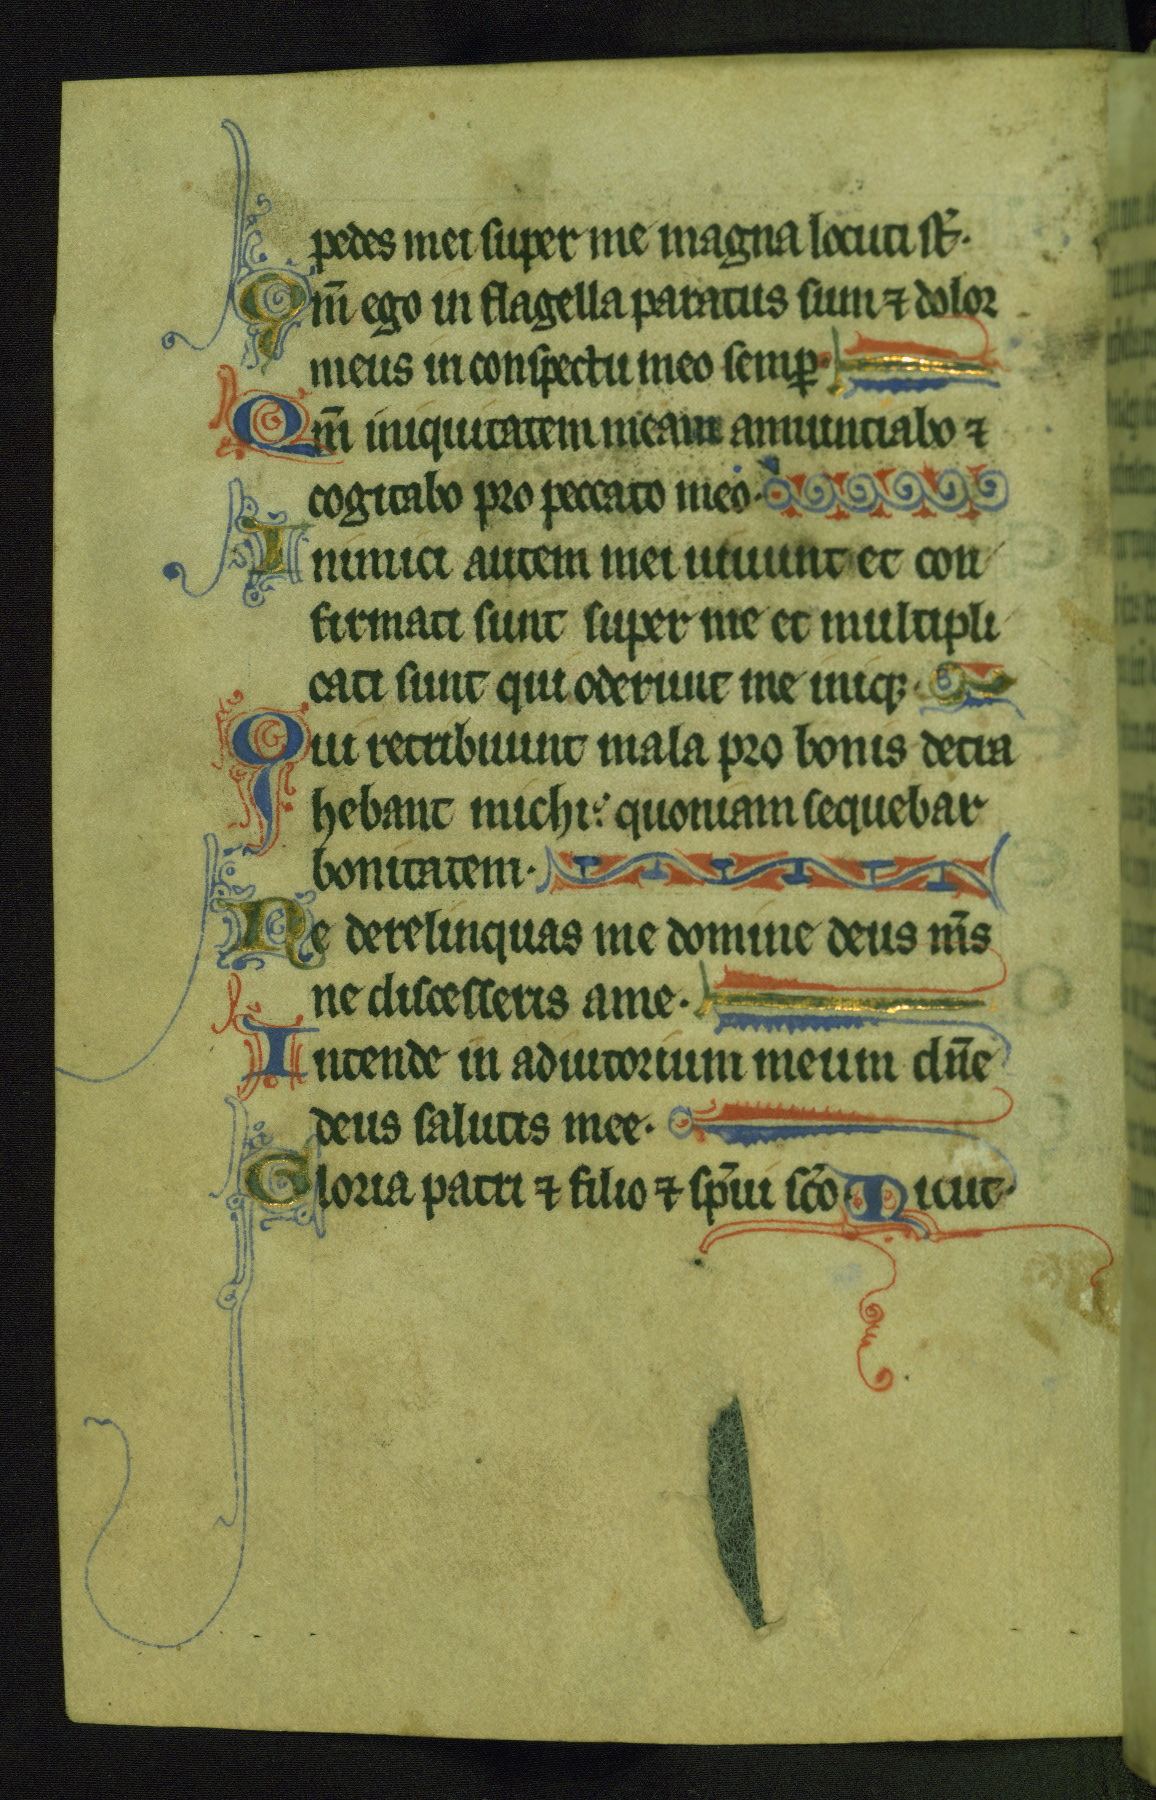 pedes mei super me magna locuti st̄.
Qm̄ ego in flagella paratus sum ⁊ dolor
meus in conspectu meo semꝑ.
Qm̄ iniquitatem meam annunciabo ⁊
cogitabo pro peccato meo.
Inimici autem mei uiuunt et con
firmati sunt super me et multipli
cati sunt qui oderunt me iniqꝫ.
Qui retribuunt mala pro bonis detra
hebant michi: quoniam sequebar
bonitatem.
Ne derelinquas me domine deus m̄s
ne discesseris a me.
Intende in adiutorium meum dn̄e
deus salutis mee.
Gloria patri ⁊ filio ⁊ sp̄ui sc̄o icut.